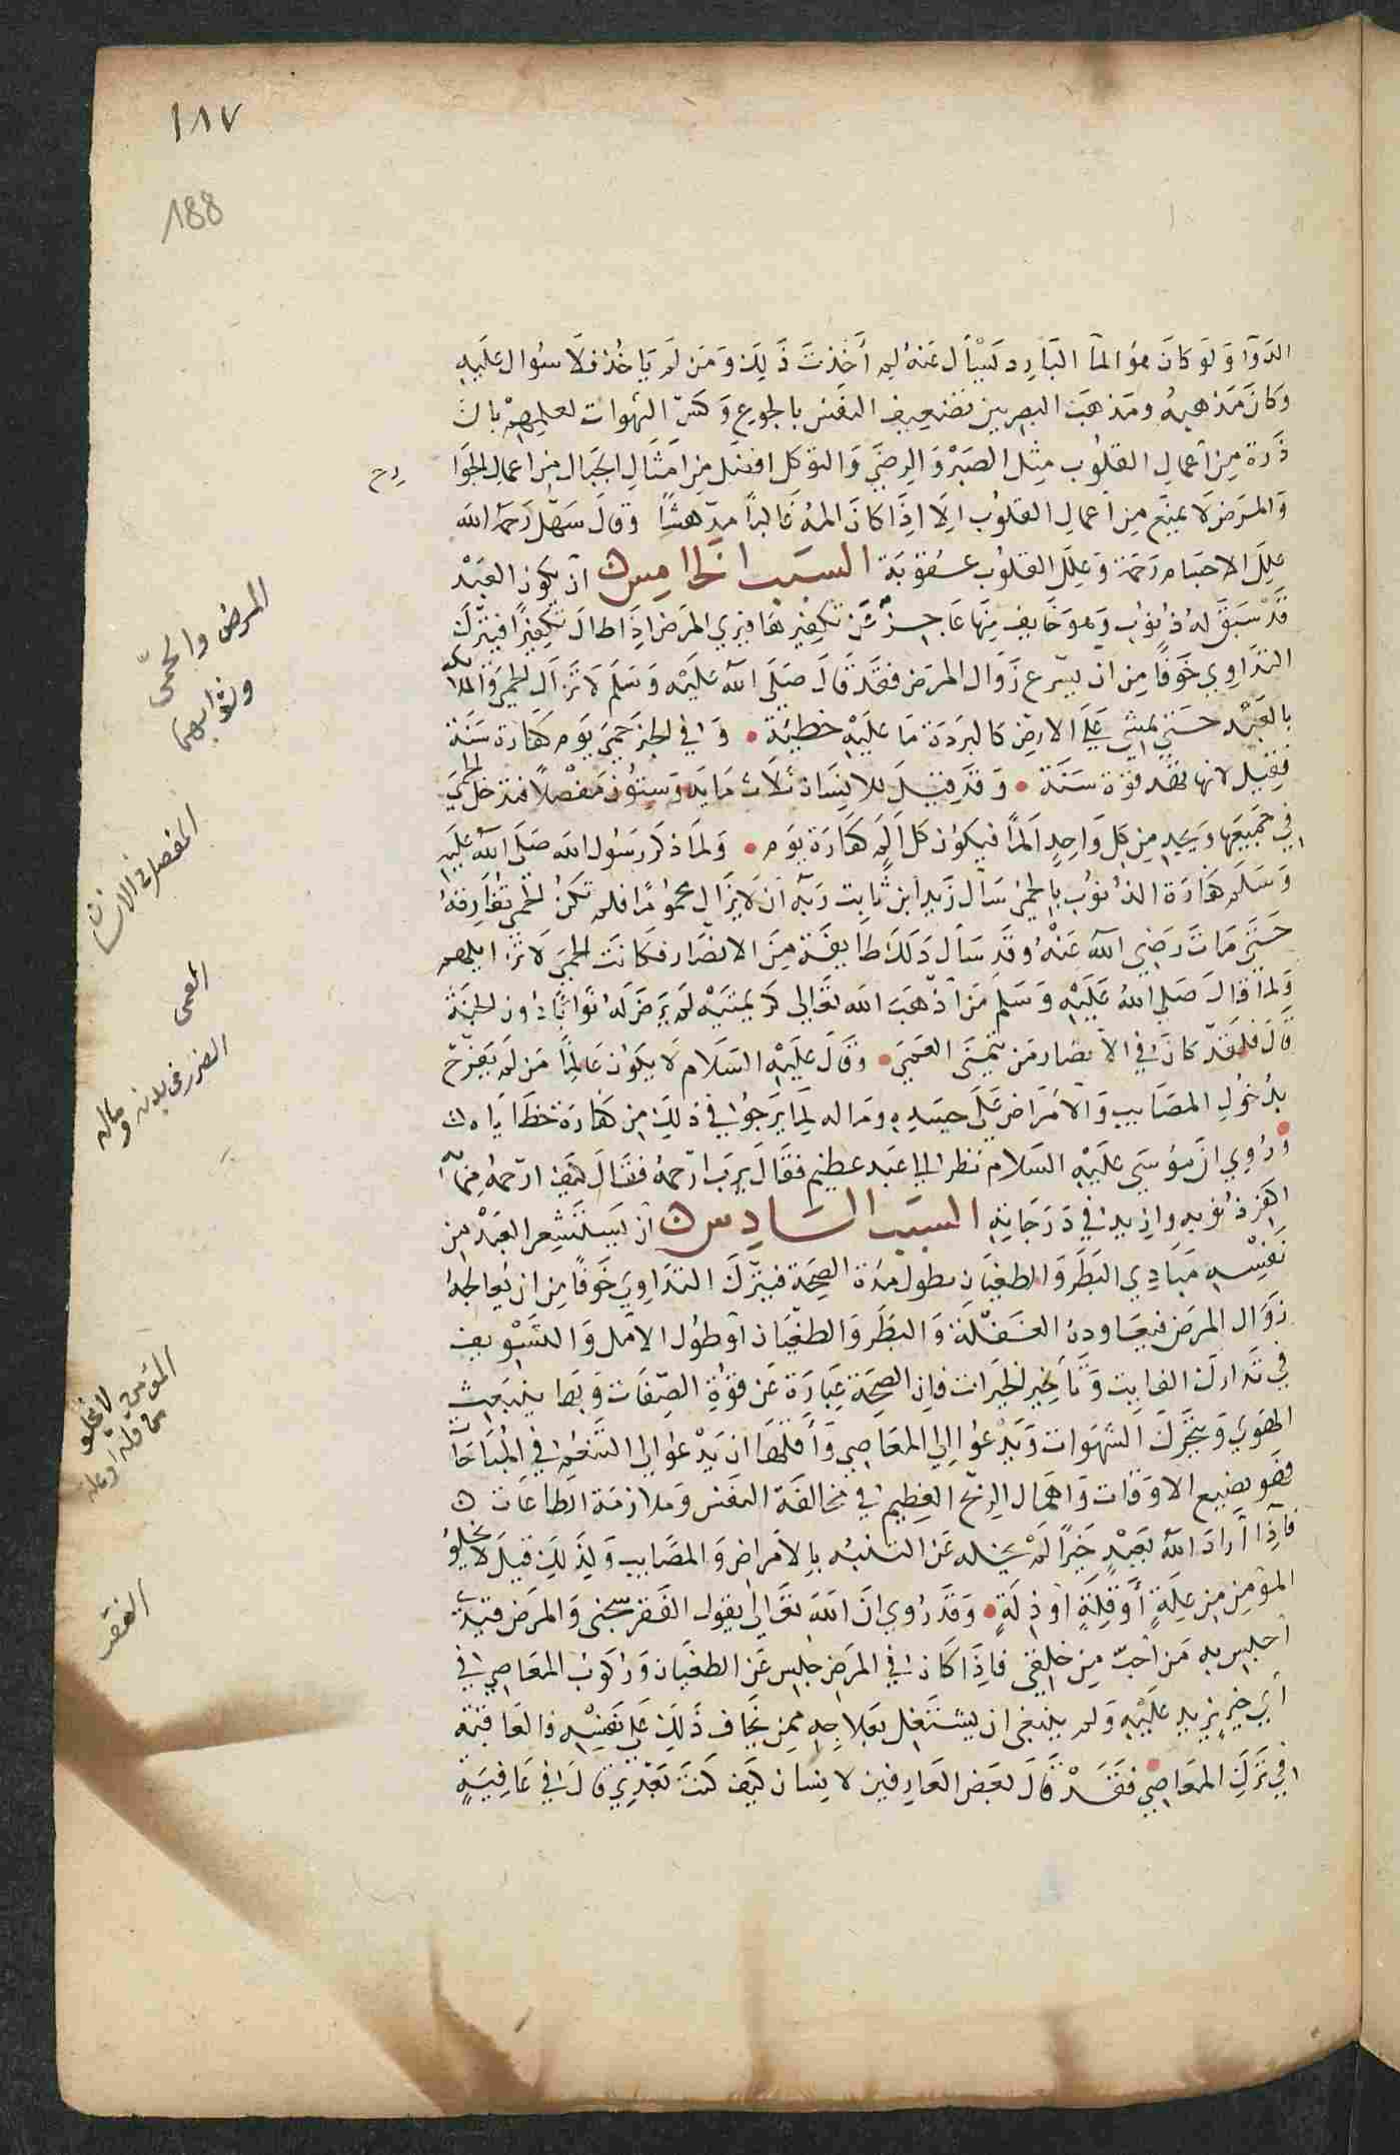 ١٨٧
188
الدوآ وَلَو كانَ هو المآ البَارِد لَيُسْأل عَنهُ لِمَ أَخَذتَ ذَلِكَ وَمَن لَم يَاخُذ فلَا سُوال عَلَيهِ
وَكَانَ مَذهبهُ ومَذهَبَ البصريين تضعيف النفس بالجوع وَكَسْر الشهوات لعلمِهِمْ بان
ذَرة مِن أعمالِ القلُوبِ مِثل الصَبْر وَالرِضَى وَالتوَكل افضَل مِن أَمثَالِ الجبَال مِن اعمال الجوَا
رح
وَالمرَض لَا يمنَع مِن أعمالِ القلوُب اِلَا اِذَا كانَ المهُ غَالبًا مدهشًا وَقالَ سَهْل رَحمَهُ الله
عِلَل الاجسَام رَحمَة وَعِلَل القلوُب عُقوبَة السَبَب الخامِس ان يكون العَبْد
قَدْ سَبَقَ لهُ ذنُوب وَهوَ خَايف مِنهَا عَاجِز عَن تكفِيرهَا فيري المرَض اذَا طالَ تَكفِيرًا فيَترُك
التدَاوِي خَوفًا مِن ان يسرع زَوَال المرَض فقَد قَالَ صَلَى الله عَلَيْه وَسَلَم لَا تزَال الحمىَ وَالمليلة
بالعَبْد حَتي يمشي عَلَى الارض كالبَردَة مَا عَلَيْهِ خطيئة • وَفي الخبَر حمىَ يَوم كفارَة سَنَة
فقِيل لانها تهد قوة سَنَة • وَقَد قيلَ للانسَان ثلاث مَايَة وَستون مَفْصلًا فتدخل الحمىَ
في جَميعهَا وَيَجِد مِن كل وَاحِدٍ اَلمًا فيكوُن كل اَلَم كفارَة يَوم • وَلمَا ذكَر رَسُول الله صَلَى الله عَلَيْه
وَسَلَم كفارَة الذنوُب بالحمىَ سَأل زَيد ابن ثَابت رَبَه ان لَا يَزَال محمُومًا فلم تكنُ الحمىَ تفَارِقهُ
حَتَى مَاتَ رَضِي الله عَنْهُ وَقَد سَأل ذَلكَ طايفَة مِنَ الانصَار فكانَت الحمىَ لَا تزايلهم
وَلمَا قَالَ صَلَى اللهُ عَلَيْهِ وَسَلم مَن أذهَبَ الله تَعَالي كريمتَيْه لَم يَرضَ لَهُ ثوابًا دُون الجنَة
قَالَ فلقَد كانَ في الانصَار مَن يتمَنى العَمىَ • وَقَالَ عَلَيْه السَلَام لَا يكوُن عَالِمًا مَن لَم يَفرَح
بدُخُولِ المصَايب وَالأمرَاض عَلَى جسَدِهِ ومَاله لِمَا يَرجوُا في ذلِكَ مِن كفارَة خطايَاه
وَرُوِي انَ مُوسَى عَلَيْهِ السَلَام نَظر اِلي عَبد عظيم فقَالَ يَرب ارحمهُ فقَالَ كيفَ ارحمهُ مِمَا
اكفر ذنوُبه وازِيد في دَرَجَاتِهِ السَبَب السَادِس ان يَسْتَشعِر العَبْد مِن
نَفْسِهِ مَبَادِي البَطَر وَالطغيَان بطول مدة الصِحَة فيترُك التدَاوِي خَوفًا مِن ان يعَاجلهُ
زوَال المرَض فتعَاودهُ الغَفْلَة وَالبَطَر وَالطغْيَان اوْ طوُل الامَل وَالتسْوِيف
في تَدَارك الفايت وَتأخير الخيرَات فاِن الصِحَة عِبَارَة عَن قوُةِ الصِفات وَبهَا ينبَعث
الهَوي وَيتحَرك الشهَوات وَتدعوُا اِلي المعَاصِي وَأقلهَا ان يَدْعوُا اِلي التنَعُم في المبَاحَات
فهوَ يضيع الاوقات وَاهمَال الرِبح العظِيم في مخالفَة النفس وَملازمَة الطاعَات
فاِذا أرَادَ الله بعَبْدٍ خَيرًا لَمْ يُخلهِ عَن التنبُه بالأمرَاض وَالمصَايب وَلِذَلِكَ قيل لَا يخلوُا
المومِن مِن عِلَةٍ أوْ قِلَةٍ اوْ ذِلَةٍ • وَقَد رُوي انَ الله تَعَالي يقول الفَقر سجني وَالمرَض قيدي
أحْبس به مَن أحبّ مِن خَلِقي فاِذَا كانَ في المرَض حَبس عَن الطغيَان وَركوُب المعَاصِي في
أي خَيرٍ يَزيد عَلَيْهِ وَلم يَنبغي ان يشتَغِل بعَلَاجِهِ مَن يخَاف ذَلِكَ عَلى نَفسِهِ فالعَافيَة
في تَرك المعَاصِي فقَدْ قَالَ بعَض العَارِفين لانسَان كيف كنتَ بَعْدِي قالَ في عَافِيَةٍ
المرض والحمّى
وثوابهما
المفصل في الانسان
العمى
الضرر في بدنه وماله
المومن لا يخلو
من قلة او علة
الفقر